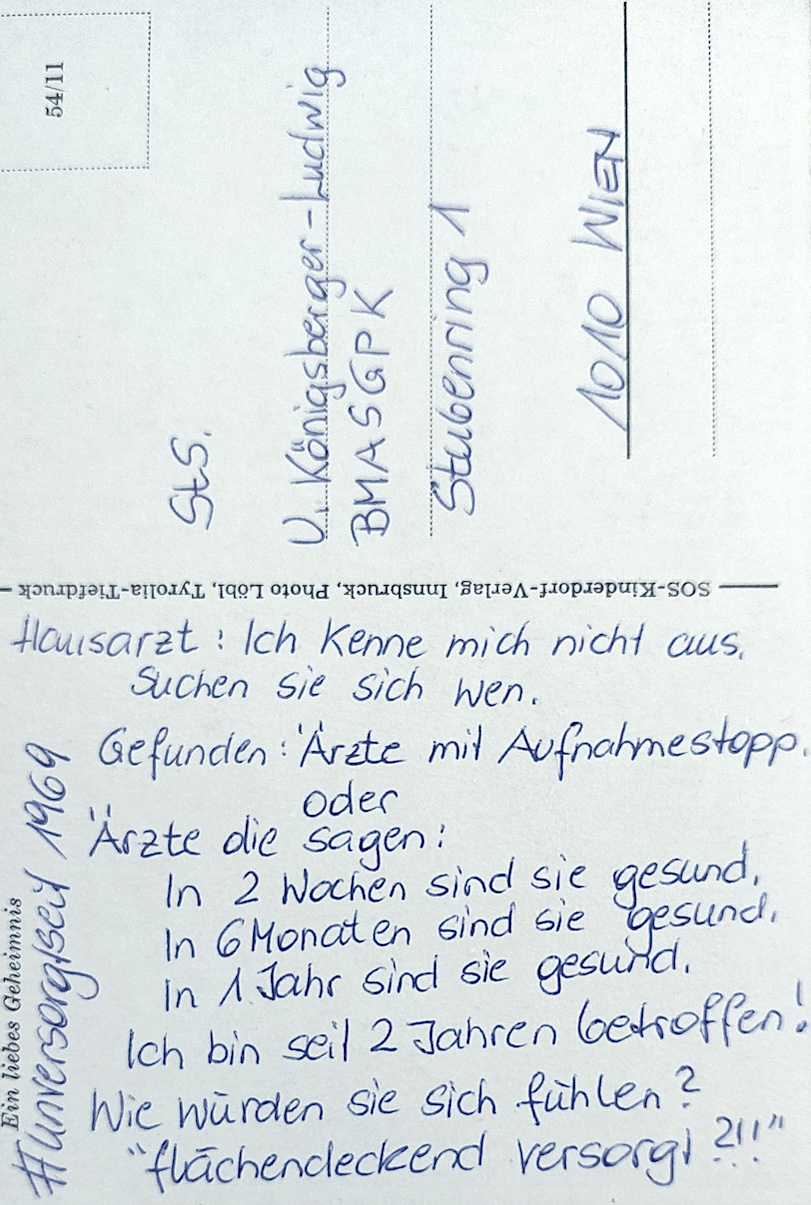 54/11
StS.
U. Königsberger-Ludwig
BMASGPK
Stubenring 1
1010 WIEN
SOS-Kinderdorf-Verlag, Innsbruck, Photo Löbl, Tyrolia-Tiefdruck
Hausarzt: Ich kenne mich nicht aus.
Suchen sie sich wen.
Gefunden: Ärzte mit Aufnahmestopp.
oder
Ärzte die sagen:
In 2 Wochen sind sie gesund.
In 6 Monaten sind sie gesund.
In 1 Jahr sind sie gesund.
Ich bin seit 2 Jahren betroffen!
Wie würden sie sich fühlen?
"flächendeckend versorgt?!!"
Ein liebes Geheimnis
#unversorgtseit 1969